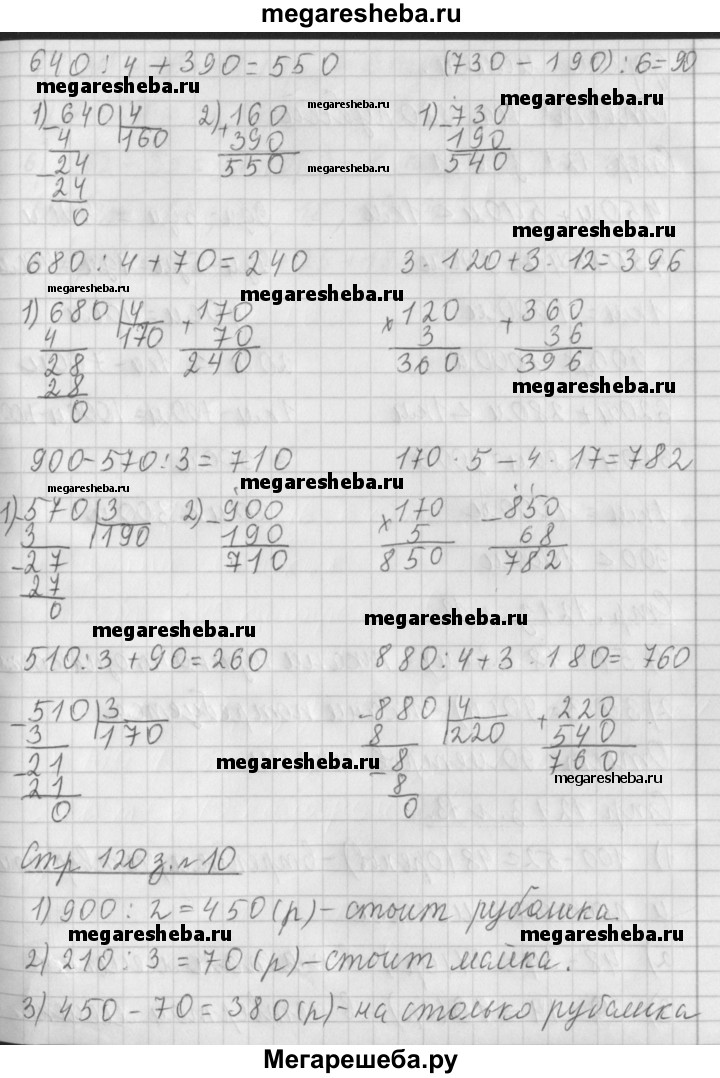 megaresheba.ru
640 : 4 + 390 = 550 (730 - 190) : 6 = 90
megaresheba.ru megaresheba.ru megaresheba.ru
1) 640 | 4 2) 160 1) 730
- 4 160 + 390 - 190
24 550 540
- 24 megaresheba.ru
0
megaresheba.ru
680 : 4 + 70 = 240 3 · 120 + 3 · 12 = 396
megaresheba.ru
1) 680 | 4 + 170 × 120 + 360
4 170 70 3 36
28 240 360 396
28 megaresheba.ru
0
900 - 570 : 3 = 710 170 · 5 - 4 · 17 = 782
megaresheba.ru megaresheba.ru
1) - 570 | 3 2) - 900 × 170 - 850
3 190 190 5 68
- 27 710 850 782
27
0
megaresheba.ru megaresheba.ru
510 : 3 + 90 = 260 880 : 4 + 3 · 180 = 760
- 510 | 3 - 880 | 4 + 220
3 170 8 220 540
- 21 megaresheba.ru - 8 760
21 8 megaresheba.ru
0 0
Стр 120 з. № 10
1) 900 : 2 = 450 (р) - стоит рубашка
megaresheba.ru megaresheba.ru
2) 210 : 3 = 70 (р) - стоит майка.
3) 450 - 70 = 380 (р) - на столько рубашка
Мегарешеба.ру